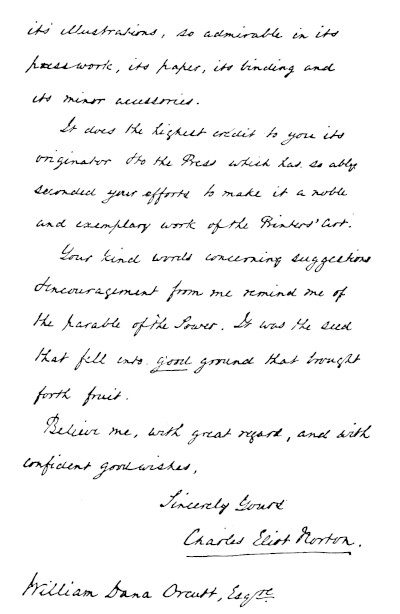 its illustrations, so admirable in its
presswork, its paper, its binding and
its minor accessories.
It does the highest credit to you its
originator & to the Press which has so ably
seconded your efforts to make it a noble
and exemplary work of the Printers' Art.
Your kind words concerning suggestions
& encouragement from me remind me of
the parable of the Sower. It was the seed
that fell into good ground that brought
forth fruit.
Believe me, with great regard, and with
confident good wishes,
Sincerely Yours
Charles Eliot Norton.
William Dana Orcutt, Esqre.